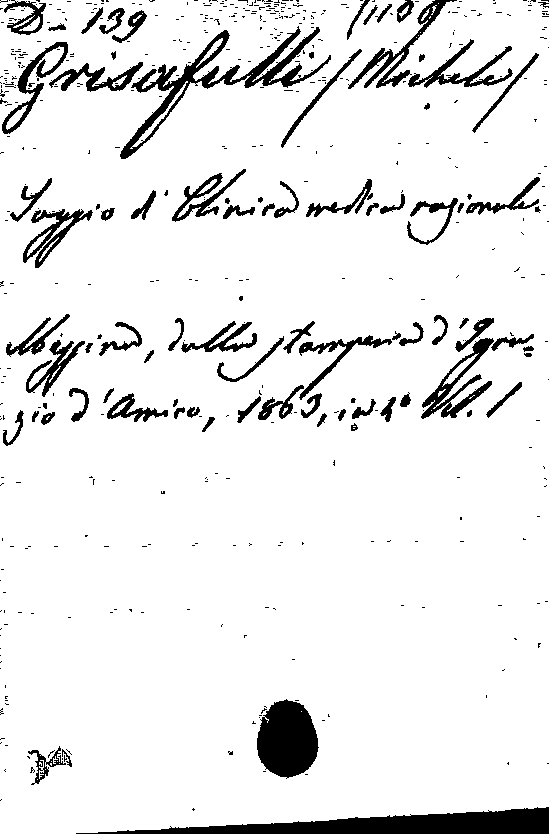 D - 139 (1109
Grisafulli (Michele)
Saggio di Clinica medica razionale.
Messina, dalla stamperia d'Igna=
zio d'Amico, 1863, in 4° Vol. 1